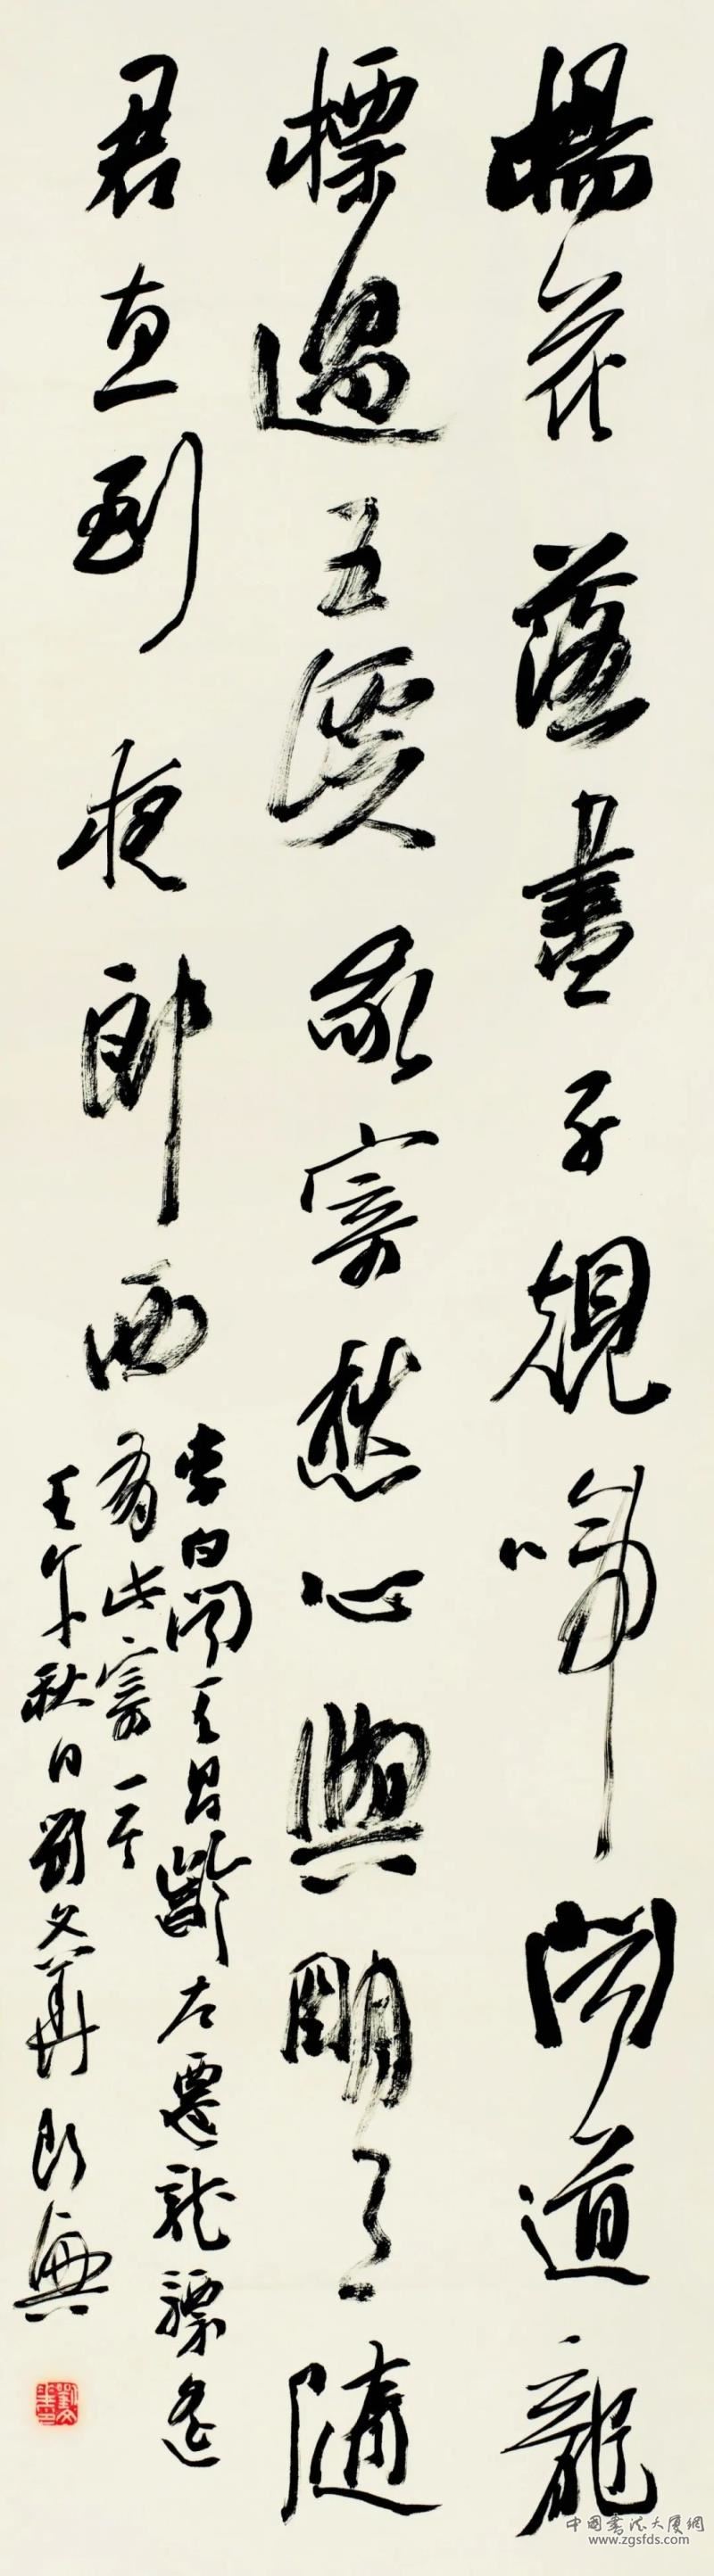 楊花落盡子規啼聞道龍
標過五溪我寄愁心與明月隨
君直到夜郎西
李白聞王昌齡左遷龍標遙
有此寄一首
壬午秋日劉文華即興
中國書法大廈網
www.zgsfds.com